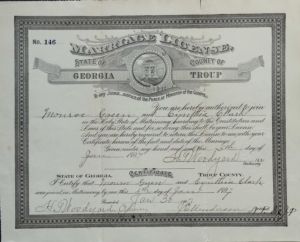 No. 146
MARRIAGE LICENSE.
STATE OF
COUNTY OF
GEORGIA
TROUP
To any Judge, Justice of the Peace or Minister of the Gospel:
You are hereby authorized to join
Monroe Green and Cynthia Clark
in the Holy State of Matrimony, according to the Constitution and
Laws of this State and for so doing this shall be your License.
And you are hereby required to return this License to me, with your
Certificate hereon of the fact and date of the Marriage.
Given under my hand and seal, this
H. T. Woodyard
CERTIFICATE
STATE OF GEORGIA,
TROUP COUNTY.
I Certify that Monroe Green and Cynthia Clark
were joined in Matrimony by me this day of